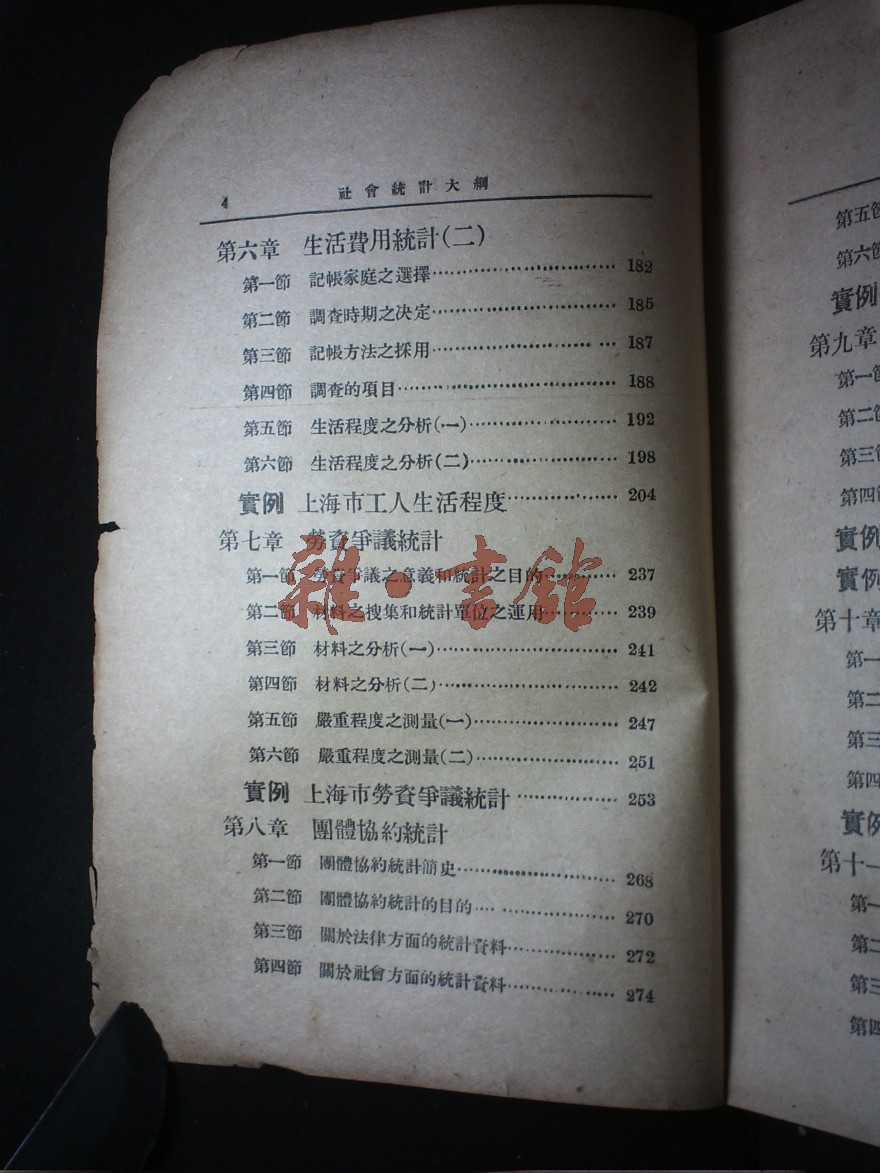 4 社會統計大綱
第六章 生活費用統計(二)
第一節 記帳家庭之選擇 182
第二節 調查時期之決定 185
第三節 記帳方法之採用 187
第四節 調查的項目 188
第五節 生活程度之分析(一) 192
第六節 生活程度之分析(二) 198
實例 上海市工人生活程度 204
第七章 勞資爭議統計
第一節 勞資爭議之意義和統計之目的 237
第二節 材料之搜集和統計單位之運用 239
第三節 材料之分析(一) 241
第四節 材料之分析(二) 242
第五節 嚴重程度之測量(一) 247
第六節 嚴重程度之測量(二) 251
實例 上海市勞資爭議統計 253
第八章 團體協約統計
第一節 團體協約統計簡史 268
第二節 團體協約統計的目的 270
第三節 關於法律方面的統計資料 272
第四節 關於社會方面的統計資料 274
雜·書館
第五節
第六節
實例
第九章
第一節
第二節
第三節
第四節
實例
實例
第十章
第一
第二
第三
第四
實例
第十一
第一
第二
第三
第四